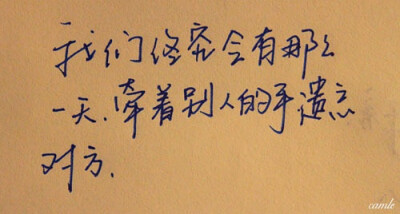 我们终究会有那么
一天.牵着别人的手遗忘
对方.
camle